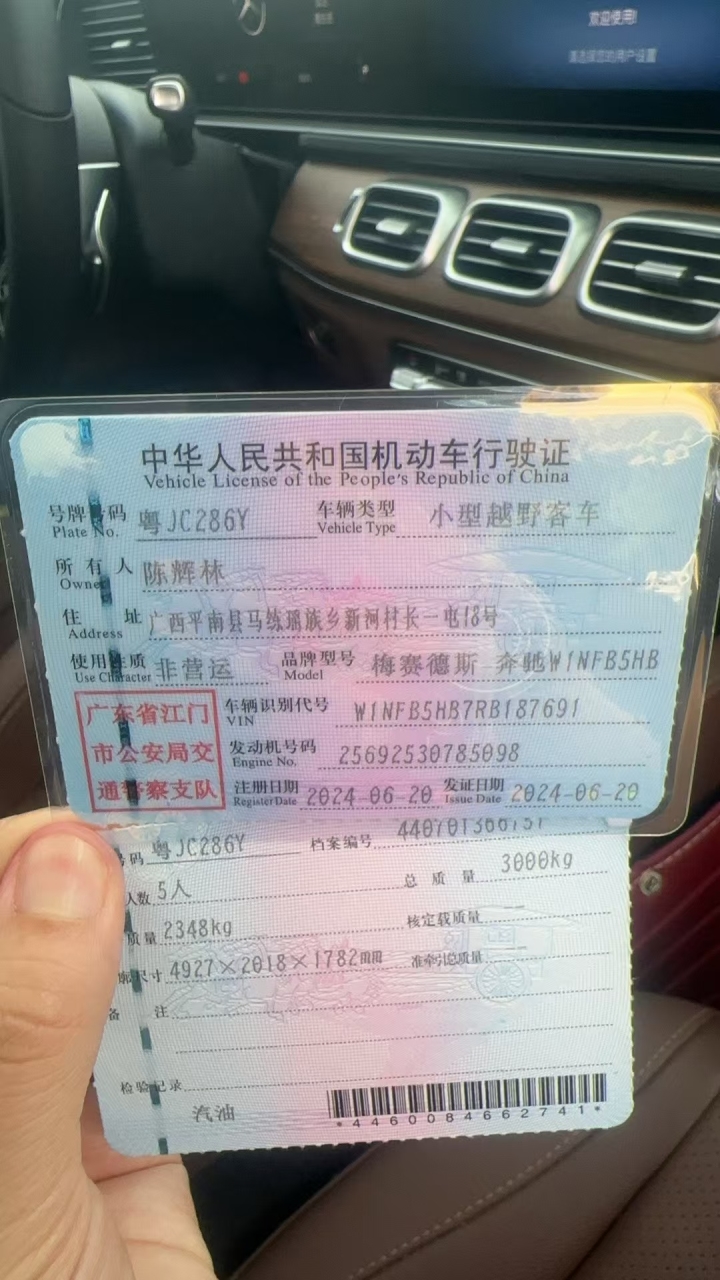 欢迎使用!
请选择您的用户设置
中华人民共和国机动车行驶证
Vehicle License of the People's Republic of China
号牌号码 粤JC286Y 车辆类型 小型越野客车
Plate No. Vehicle Type
所有人 陈辉林
Owner
住址 广西平南县马练瑶族乡新河村长一屯18号
Address
使用性质 非营运 品牌型号 梅赛德斯 奔驰W1NFB5HB
Use Character Model
广东省江门
市公安局交
通警察支队
车辆识别代号 W1NFB5HB7RB187691
VIN
发动机号码 25692530785098
Engine No.
注册日期 2024-06-20 发证日期 2024-06-20
Register Date Issue Date
号码 粤JC286Y 档案编号
人数 5人 总质量 3000kg
质量 2348kg 核定载质量
廓尺寸 4927×2018×1782mm 准牵引总质量
备注
检验记录
汽油
*4460084662741*